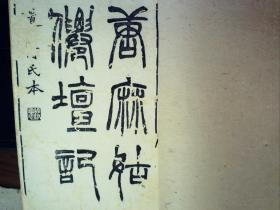 唐麻姑
仙壇記
氏本